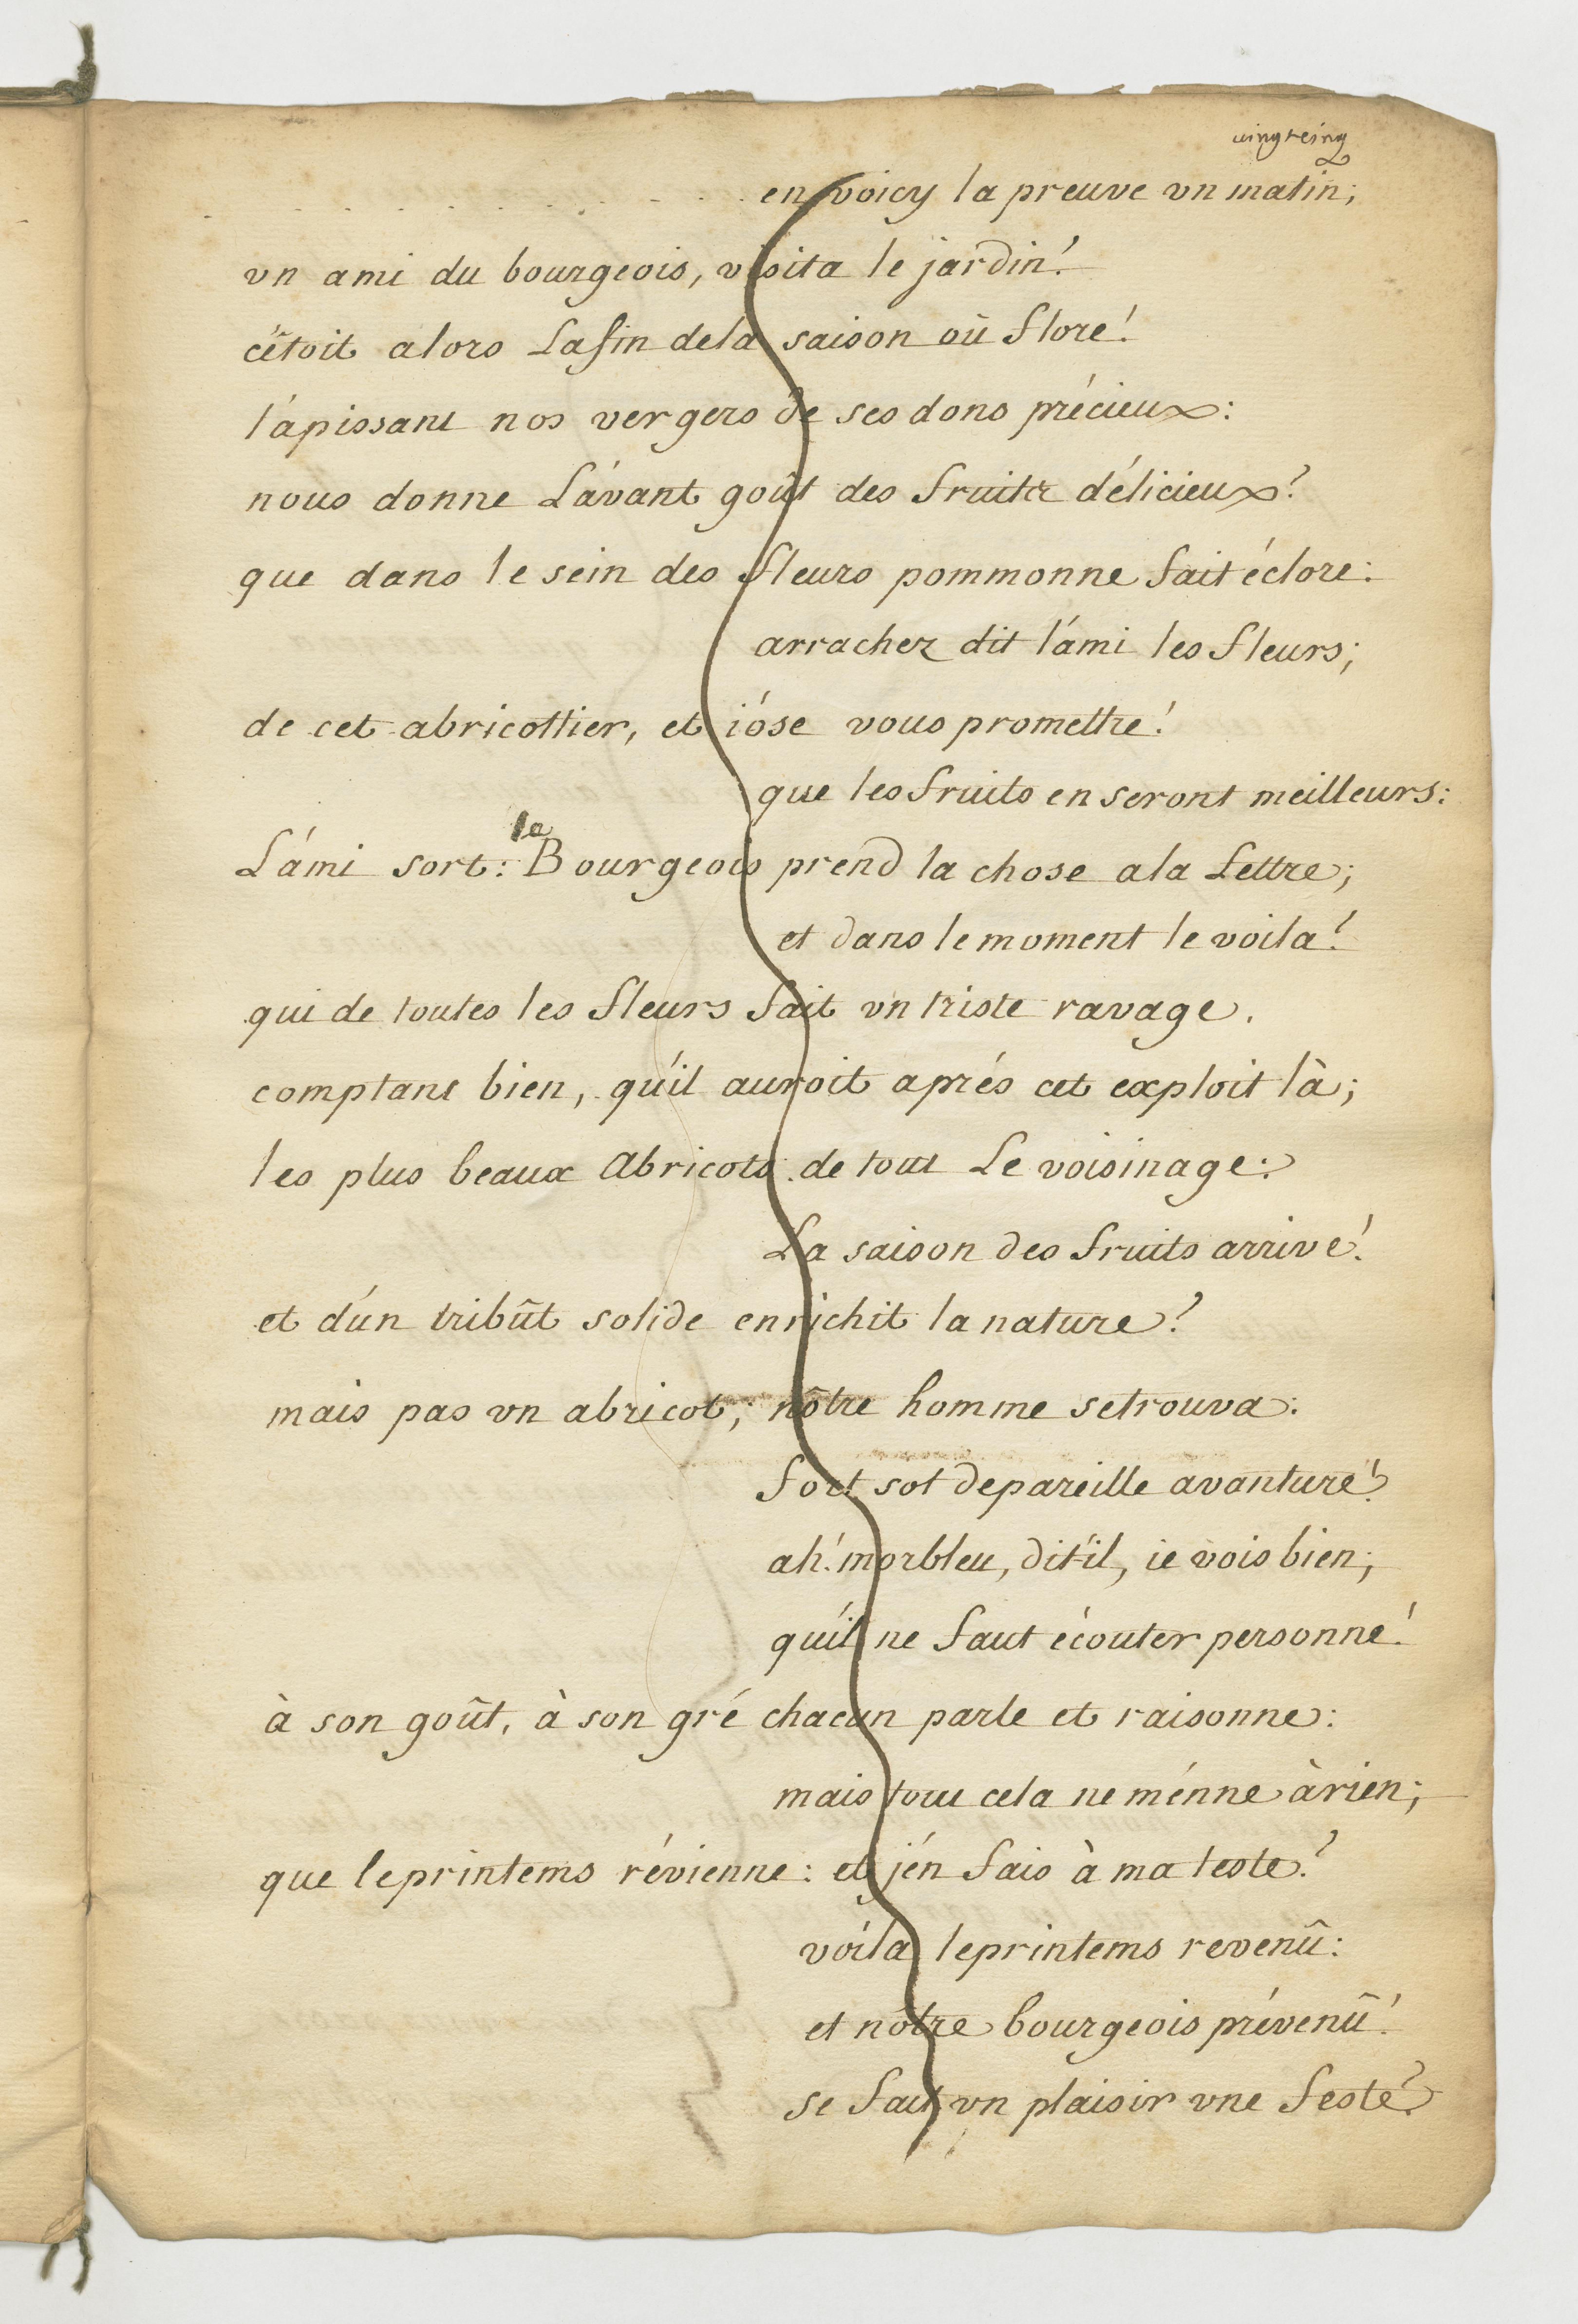 vingt cinq
. . . . . . . . . en voicy la preuve vn matin;
vn ami du bourgeois, visita le jardin!
c'étoit alors La fin dela saison où flore!
tápissant nos vergers de ses dons précieux:
nous donne L'avant goût des fruits délicieux?
que dans le sein des fleurs pommonne fait éclore:
arrachez dit l'ami les fleurs;
de cet abricottier, et i'óse vous promettre!
que les fruits en seront meilleurs:
L'ami sort: le Bourgeois prend la chose a la Lettre;
et dans le moment le voila!
qui de toutes les fleurs fait vn triste ravage.
comptant bien, qu'il auroit aprés cet exploit là;
les plus beaux abricots de tout Le voisinage:
La saison des fruits arrive!
et d'un tribût solide enrichit la nature?
mais pas vn abricot; nôtre homme se trouva:
fort sot de pareille avanture!
ah! morbleu, dit'il, ie vois bien;
qu'il ne faut écouter personne!
à son goût, à son gré chacun parle et raisonne:
mais tout cela ne ménne à rien;
que le printems révienne: et j'én fais à ma teste?
voila le printems revenû:
et nôtre bourgeois prévenû!
se fait vn plaisir vne feste?